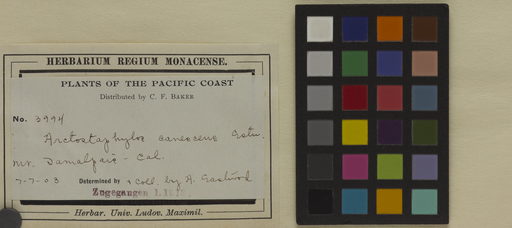 HERBARIUM REGIUM MONACENSE.
PLANTS OF THE PACIFIC COAST
Distributed by C. F. BAKER
No. 3994
Arctostaphylos canescens Eastw.
Mt. Tamalpais - Cal.
7-7-03 Determined by & Coll. by A. Eastwood
Zugegangen
Herbar. Univ. Ludov. Maximil.